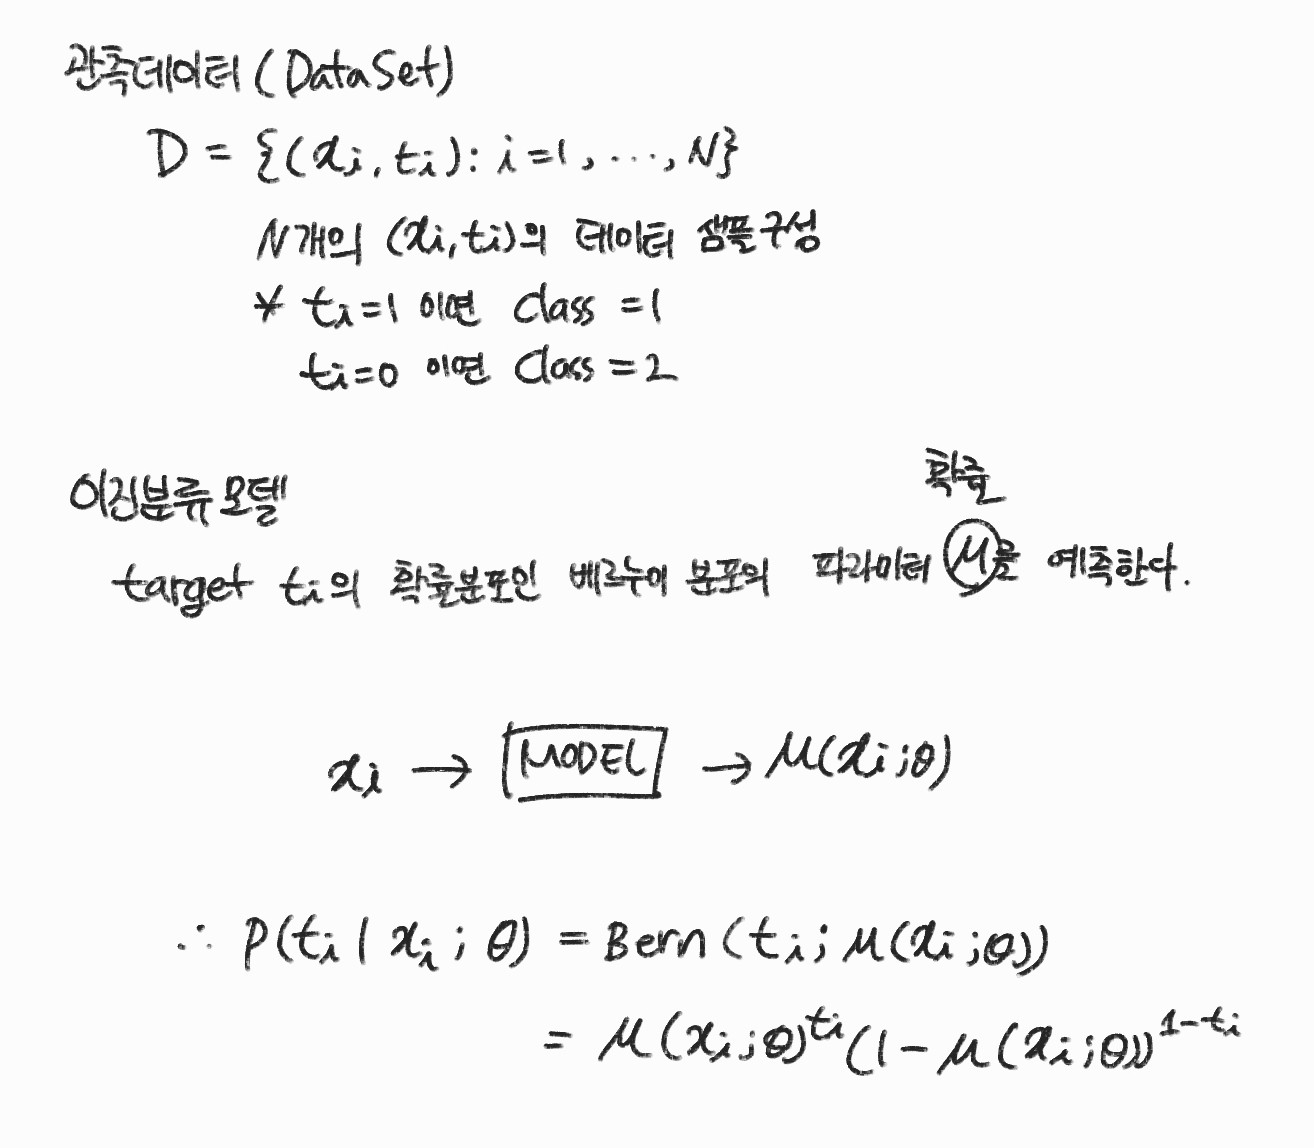 관측데이터 (DataSet)
D = {(xi, ti): i=1, ..., N}
N개의 (xi, ti)의 데이터 샘플구성
* ti=1 이면 class =1
ti=0 이면 class =2
이진분류모델
확률
target ti의 확률분포인 베르누이 분포의 파라미터 μ를 예측한다.
xi → MODEL → μ(xi;θ)
∴ P(ti | xi ; θ) = Bern (ti; μ(xi;θ))
= μ(xi;θ)^ti (1-μ(xi;θ))^1-ti